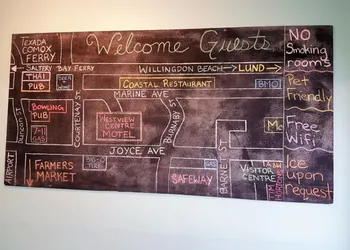 Welcome Guests
TEXADA
COMOX
FERRY
SALTERY BAY FERRY
WILLINGDON BEACH
LUND
THAI
PUB
BEER &
WINE
COASTAL RESTAURANT
BMO
MARINE AVE
BOWLING
PUB
7-11
GAS
DUNCAN ST
COURTENAY ST
WESTVIEW
CENTRE
MOTEL
BURNABY ST
JOYCE AVE
BARNET ST
AIRPORT
FARMERS
MARKET
SAFEWAY
GAS
VISITOR
CENTRE
NO
Smoking
rooms
Pet
friendly
Free
WiFi
Ice
upon
request